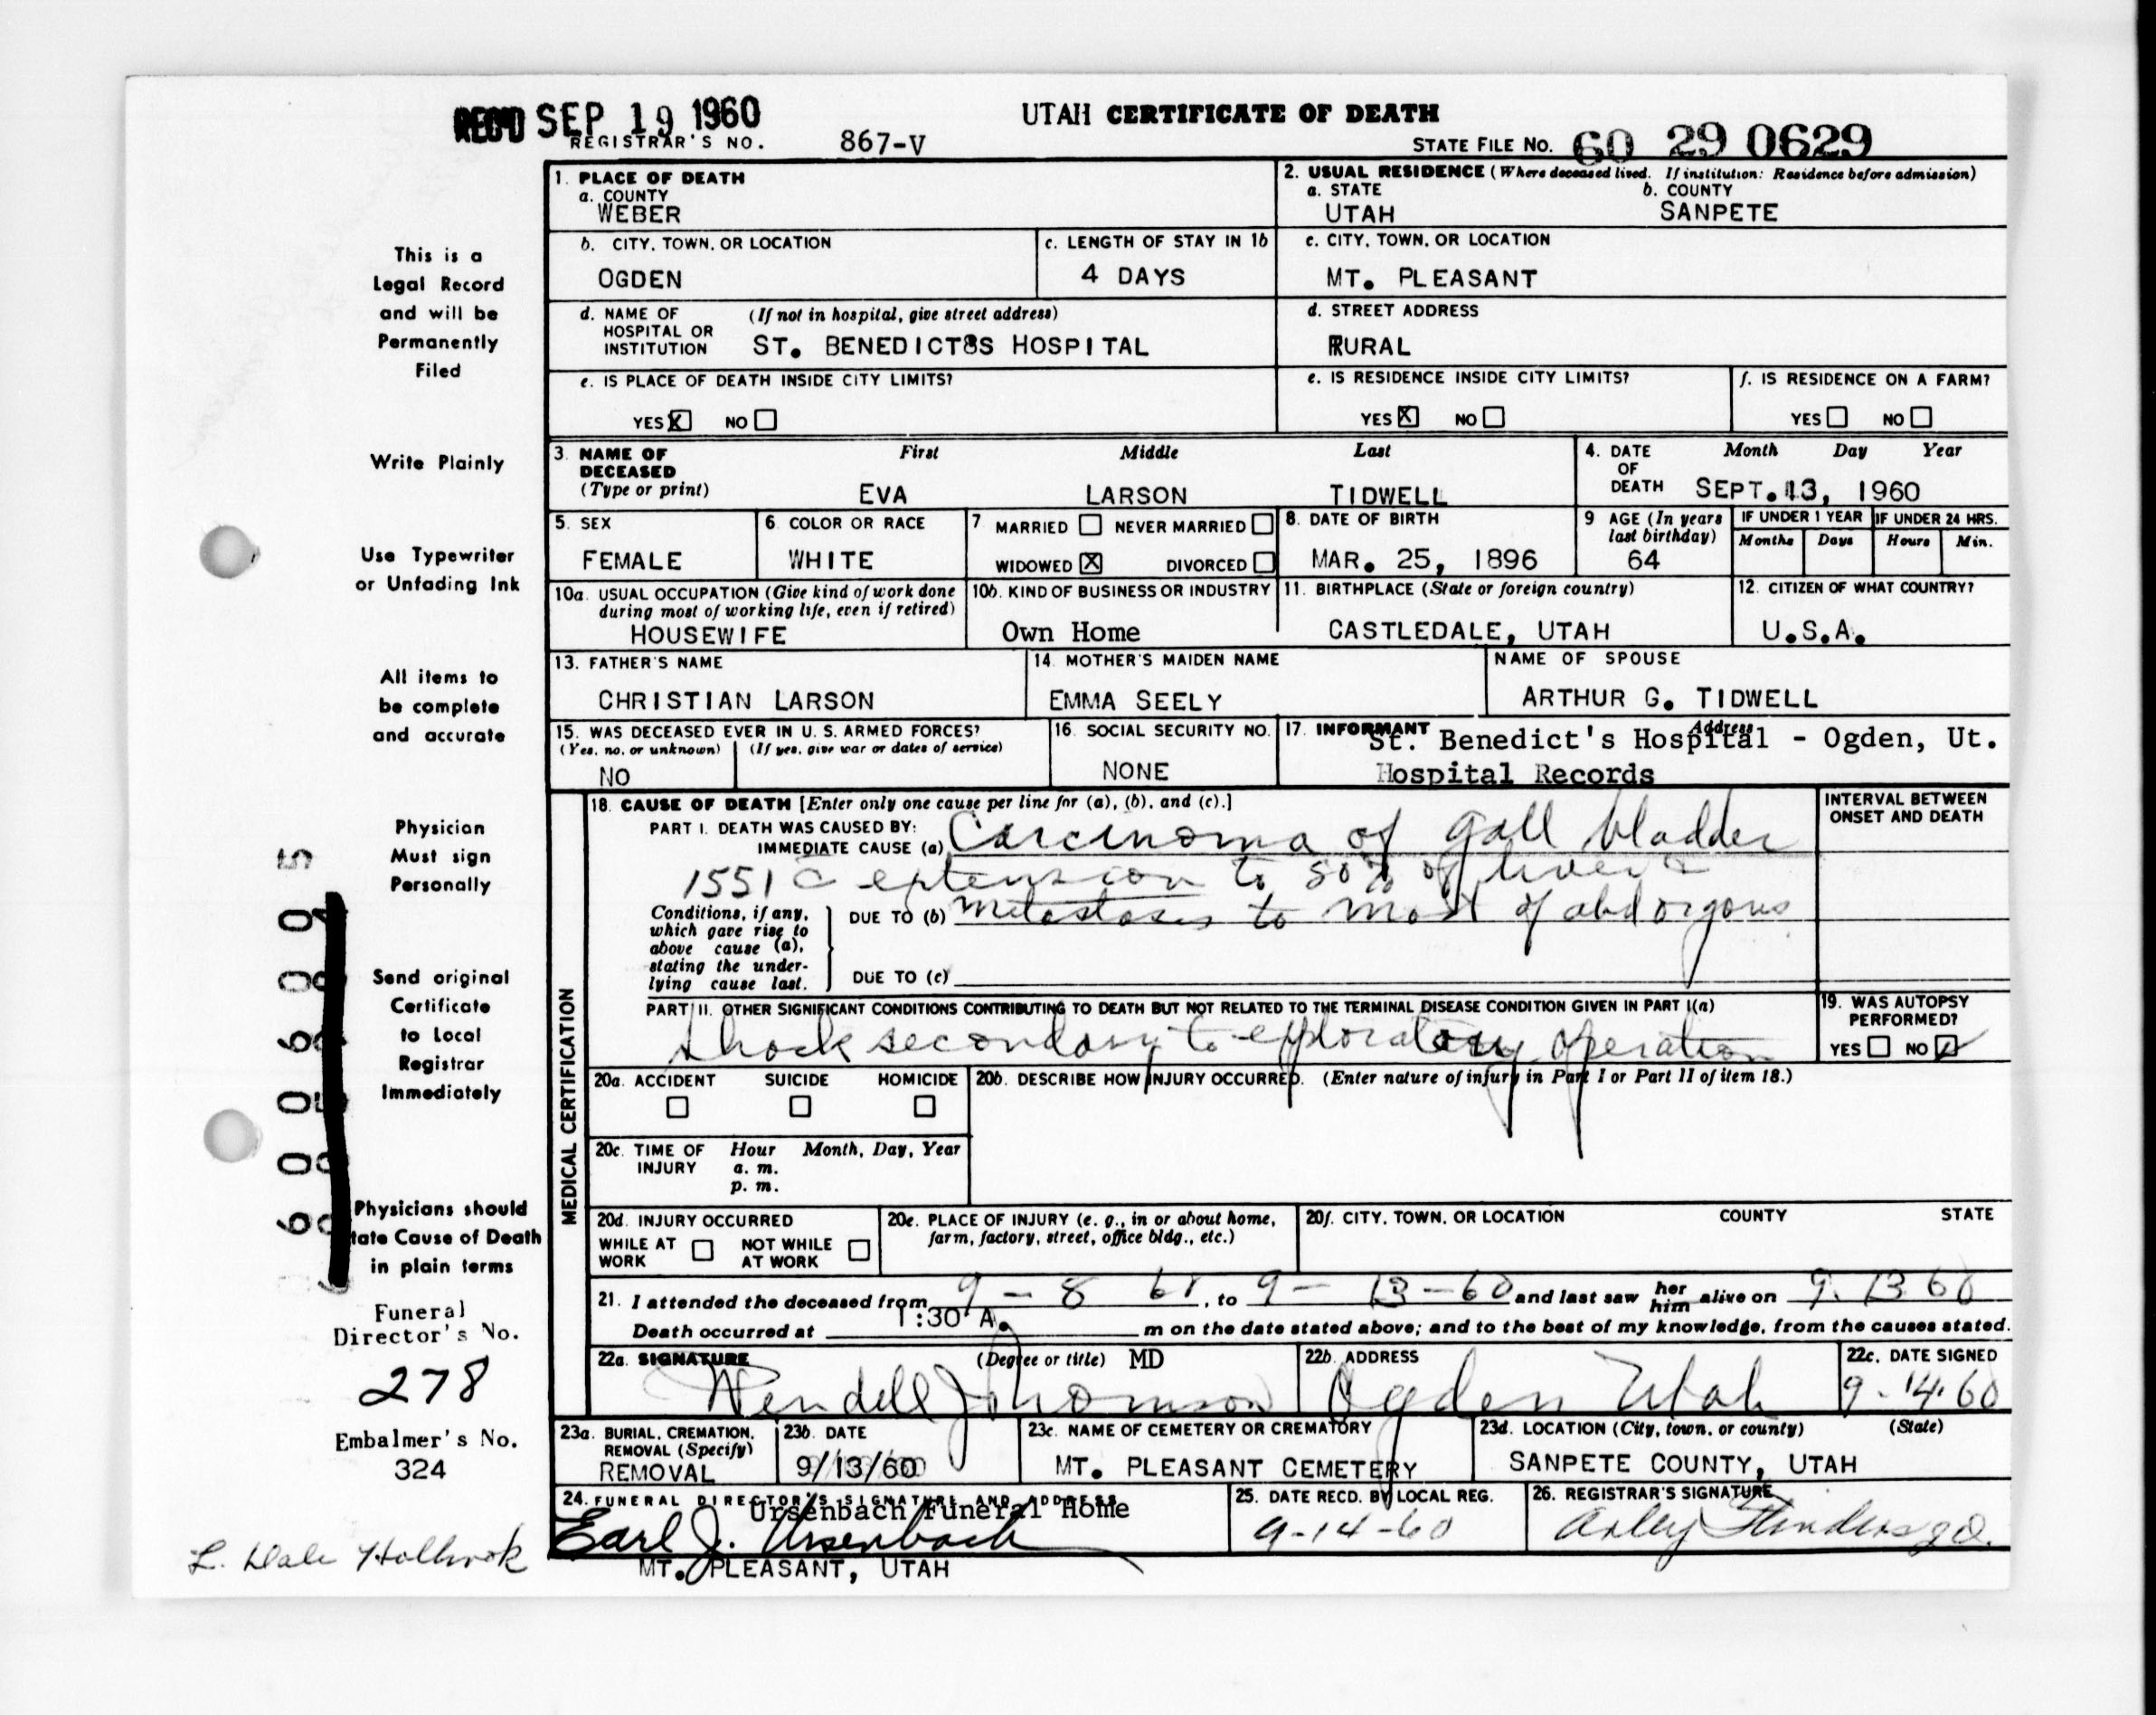 REC'D SEP 19 1960
UTAH CERTIFICATE OF DEATH
REGISTRAR'S NO. 867-V
STATE FILE NO. 60 29 0629
1. PLACE OF DEATH
a. COUNTY
WEBER
2. USUAL RESIDENCE (Where deceased lived. If institution: Residence before admission)
a. STATE b. COUNTY
UTAH SANPETE
b. CITY, TOWN, OR LOCATION
OGDEN
c. LENGTH OF STAY IN 1b
4 DAYS
c. CITY, TOWN, OR LOCATION
MT. PLEASANT
d. NAME OF HOSPITAL OR INSTITUTION (If not in hospital, give street address)
ST. BENEDICT8S HOSPITAL
d. STREET ADDRESS
RURAL
e. IS PLACE OF DEATH INSIDE CITY LIMITS?
YES X NO
e. IS RESIDENCE INSIDE CITY LIMITS?
YES X NO
f. IS RESIDENCE ON A FARM?
YES NO
3. NAME OF DECEASED (Type or print)
First Middle Last
EVA LARSON TIDWELL
4. DATE OF DEATH
Month Day Year
SEPT. 13, 1960
5. SEX
FEMALE
6. COLOR OR RACE
WHITE
7 MARRIED NEVER MARRIED
WIDOWED X DIVORCED
8. DATE OF BIRTH
MAR. 25, 1896
9 AGE (In years last birthday)
64
IF UNDER 1 YEAR IF UNDER 24 HRS.
Months Days Hours Min.
10a. USUAL OCCUPATION (Give kind of work done during most of working life, even if retired)
HOUSEWIFE
10b. KIND OF BUSINESS OR INDUSTRY
Own Home
11. BIRTHPLACE (State or foreign country)
CASTLEDALE, UTAH
12. CITIZEN OF WHAT COUNTRY?
U.S.A.
13. FATHER'S NAME
CHRISTIAN LARSON
14. MOTHER'S MAIDEN NAME
EMMA SEELY
NAME OF SPOUSE
ARTHUR G. TIDWELL
15. WAS DECEASED EVER IN U. S. ARMED FORCES?
(Yes, no, or unknown) (If yes, give war or dates of service)
NO
16. SOCIAL SECURITY NO.
NONE
17. INFORMANT Address
St. Benedict's Hospital - Ogden, Ut.
Hospital Records
MEDICAL CERTIFICATION
18. CAUSE OF DEATH [Enter only one cause per line for (a), (b), and (c).]
INTERVAL BETWEEN ONSET AND DEATH
PART I. DEATH WAS CAUSED BY:
IMMEDIATE CAUSE (a) Carcinoma of gall bladder
1551 c extension to 80% of liver c
Conditions, if any, which gave rise to above cause (a), stating the underlying cause last.
DUE TO (b) metastases to most of abd organs
DUE TO (c)
PART II. OTHER SIGNIFICANT CONDITIONS CONTRIBUTING TO DEATH BUT NOT RELATED TO THE TERMINAL DISEASE CONDITION GIVEN IN PART I(a)
shock secondary to exploratory operation
19. WAS AUTOPSY PERFORMED?
YES NO
20a. ACCIDENT SUICIDE HOMICIDE
20b. DESCRIBE HOW INJURY OCCURRED. (Enter nature of injury in Part I or Part II of item 18.)
20c. TIME OF INJURY Hour Month, Day, Year
a. m.
p. m.
20d. INJURY OCCURRED
WHILE AT WORK NOT WHILE AT WORK
20e. PLACE OF INJURY (e. g., in or about home, farm, factory, street, office bldg., etc.)
20f. CITY, TOWN, OR LOCATION COUNTY STATE
21. I attended the deceased from 9 - 8 60, to 9 - 13 - 60 and last saw her him alive on 9. 13 60
Death occurred at 1:30 A. m on the date stated above; and to the best of my knowledge, from the causes stated.
22a. SIGNATURE (Degree or title) MD
Wendell J Thomson
22b. ADDRESS
Ogden Utah
22c. DATE SIGNED
9-14-60
23a. BURIAL, CREMATION, REMOVAL (Specify)
REMOVAL
23b. DATE
9/13/60
23c. NAME OF CEMETERY OR CREMATORY
MT. PLEASANT CEMETERY
23d. LOCATION (City, town, or county) (State)
SANPETE COUNTY, UTAH
24. FUNERAL DIRECTOR'S SIGNATURE AND ADDRESS
Ursenbach Funeral Home
Earl J. Ursenbach
MT. PLEASANT, UTAH
25. DATE RECD. BY LOCAL REG.
9-14-60
26. REGISTRAR'S SIGNATURE
This is a
Legal Record
and will be
Permanently
Filed
Write Plainly
Use Typewriter
or Unfading Ink
All items to
be complete
and accurate
Physician
Must sign
Personally
Send original
Certificate
to Local
Registrar
Immediately
Physicians should
tate Cause of Death
in plain terms
Funeral
Director's No.
278
Embalmer's No.
324
L. Dale Holbrook